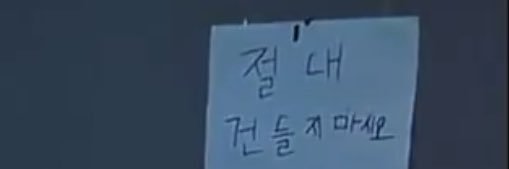 절대
건들지마시오